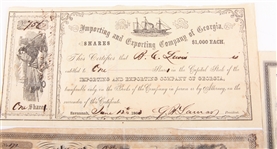 Importing and Exporting Company of Georgia.
SHARES $1,000 EACH.
This Certifies that W. C. Lewis is
entitled to One Share in the Capital Stock of the
IMPORTING AND EXPORTING COMPANY OF GEORGIA,
transferable only on the Books of the Company in person or by Attorney on
surrender of this Certificate.
One Share
SAVANNAH, June 18th President